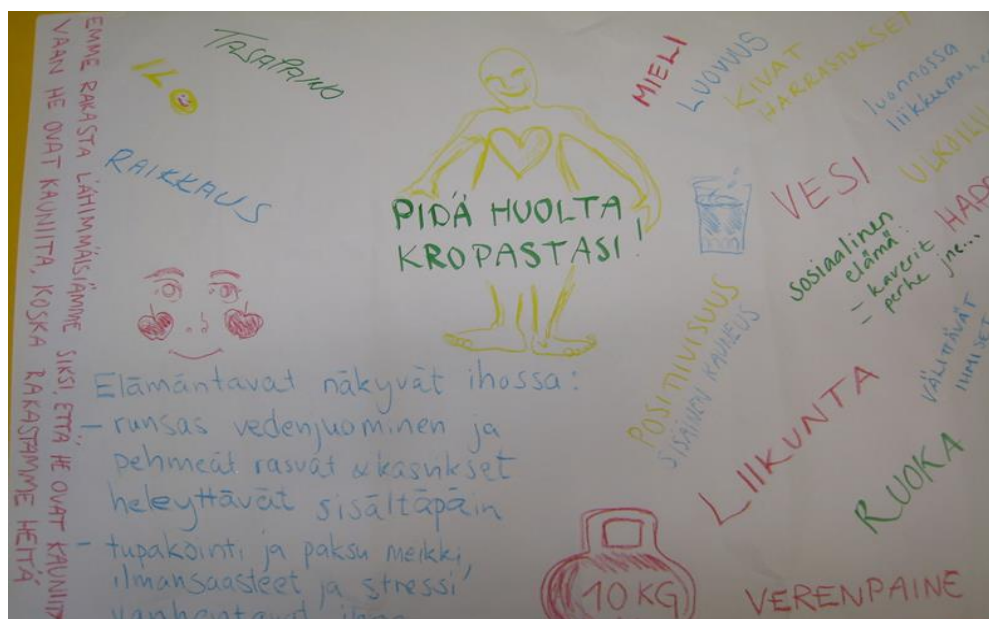 EMME RAKASTA LÄHIMMÄISIÄMME SIKSI, ETTÄ HE OVAT KAUNIITA
VAAN HE OVAT KAUNIITA, KOSKA RAKASTAMME HEITÄ
ILO
TASAPAINO
RAIKKAUS
PIDÄ HUOLTA
KROPASTASI!
MIELI
LUOVUUS
KIVAT
HARRASTUKSET
luonnossa
VESI
sosiaalinen
elämä:
- kaverit
- perhe jne...
VÄLITTÄVÄT
IHMISET
POSITIIVISUUS
SISÄINEN KAUNEUS
LIIKUNTA
RUOKA
Elämäntavat näkyvät ihossa:
- runsas vedenjuominen ja
pehmeät rasvat & kasvikset
heleyttävät sisältäpäin
- tupakointi ja paksu meikki,
ilmansaasteet ja stressi
10 KG
VERENPAINE